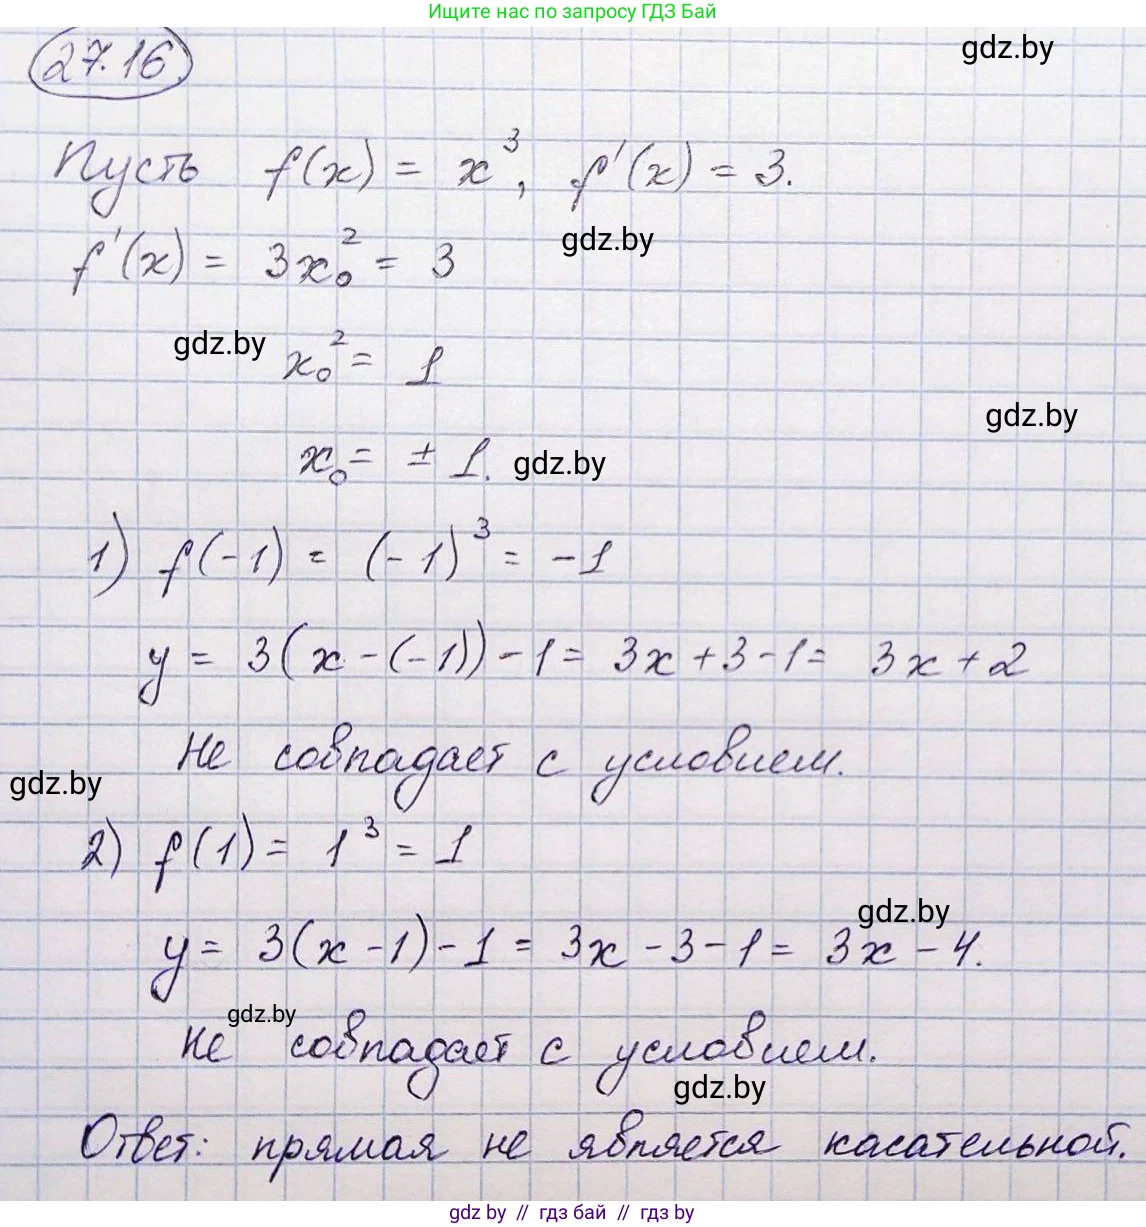 Ищите нас по запросу ГДЗ Бай
27.16
gdz.by
Пусть f(x) = x³, f'(x) = 3.
gdz.by
f'(x) = 3x₀² = 3
gdz.by
x₀² = 1
gdz.by
x₀ = ± 1.
gdz.by
1) f(-1) = (-1)³ = -1
y = 3(x-(-1))-1 = 3x+3-1 = 3x+2
Не совпадает с условием.
gdz.by
2) f(1) = 1³ = 1
gdz.by
y = 3(x-1)-1 = 3x-3-1 = 3x-4.
gdz.by
Не совпадает с условием.
gdz.by
Ответ: прямая не является касательной.
gdz by // гдз бай // гдз by